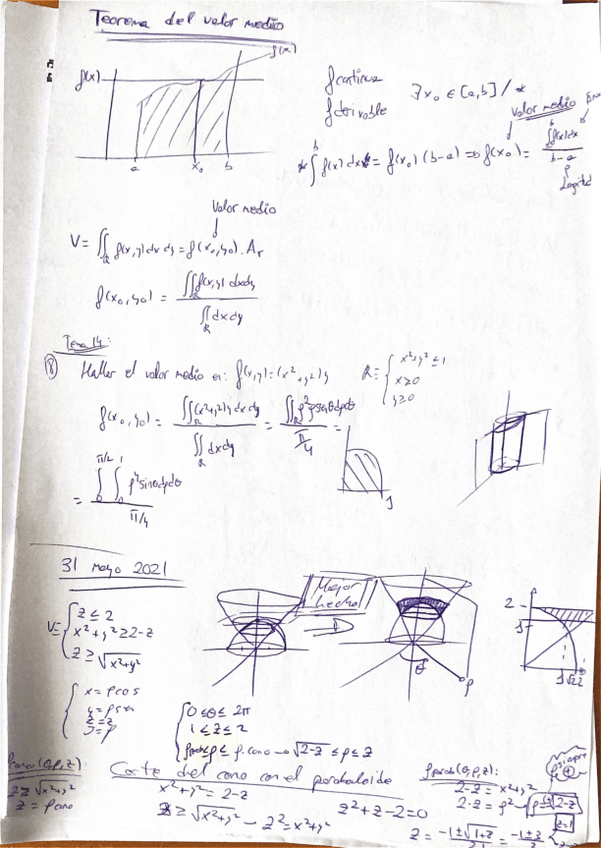 Teorema del valor medio
f(x)
f(x)
a x₀ b
f continua
f derivable
∃ x₀ ∈ [a,b] / *
valor medio
* ∫ₐᵇ f(x) dx = f(x₀) (b-a) ⇒ f(x₀) = ∫ₐᵇ f(x) dx / (b-a)
Valor medio
V = ∬_R f(x,y) dx dy = f(x₀,y₀) · Ar
f(x₀,y₀) = ∬_R f(x,y) dx dy / ∬_R dx dy
Tema 14:
18 Hallar el valor medio en: f(x,y) = (x²+y²)y R = { x²+y² ≤ 1
x ≥ 0
y ≥ 0
f(x₀,y₀) = ∬_R (x²+y²)y dx dy / ∬_R dx dy = ∬_R ρ²ρ senθ ρ dρ dθ / π/4 =
1
= ∫₀^π/2 ∫₀¹ ρ⁴ sinθ dρ dθ / π/4
31 mayo 2021
Mejor hecho
V ≡ { z ≤ 2
x²+y² ≥ 2-z
z ≥ √x²+y²
θ
ρ
2
1
{ x = ρ cos
y = ρ sin
z = z
J = ρ
{ 0 ≤ θ ≤ 2π
1 ≤ z ≤ 2
ρ parab ≤ ρ ≤ ρ cono → √2-z ≤ ρ ≤ z
ρ cono (θ,ρ,z):
z ≥ √x²+y²
z = ρ cono
Corte del cono con el paraboloide
x²+y² = 2-z
z ≥ √x²+y² - z² = x²+y²
z²+z-2=0
ρ parab (θ,ρ,z):
2-z = x²+y²
2-z = ρ²
ρ = + √2-z
siempre (+)
z=1